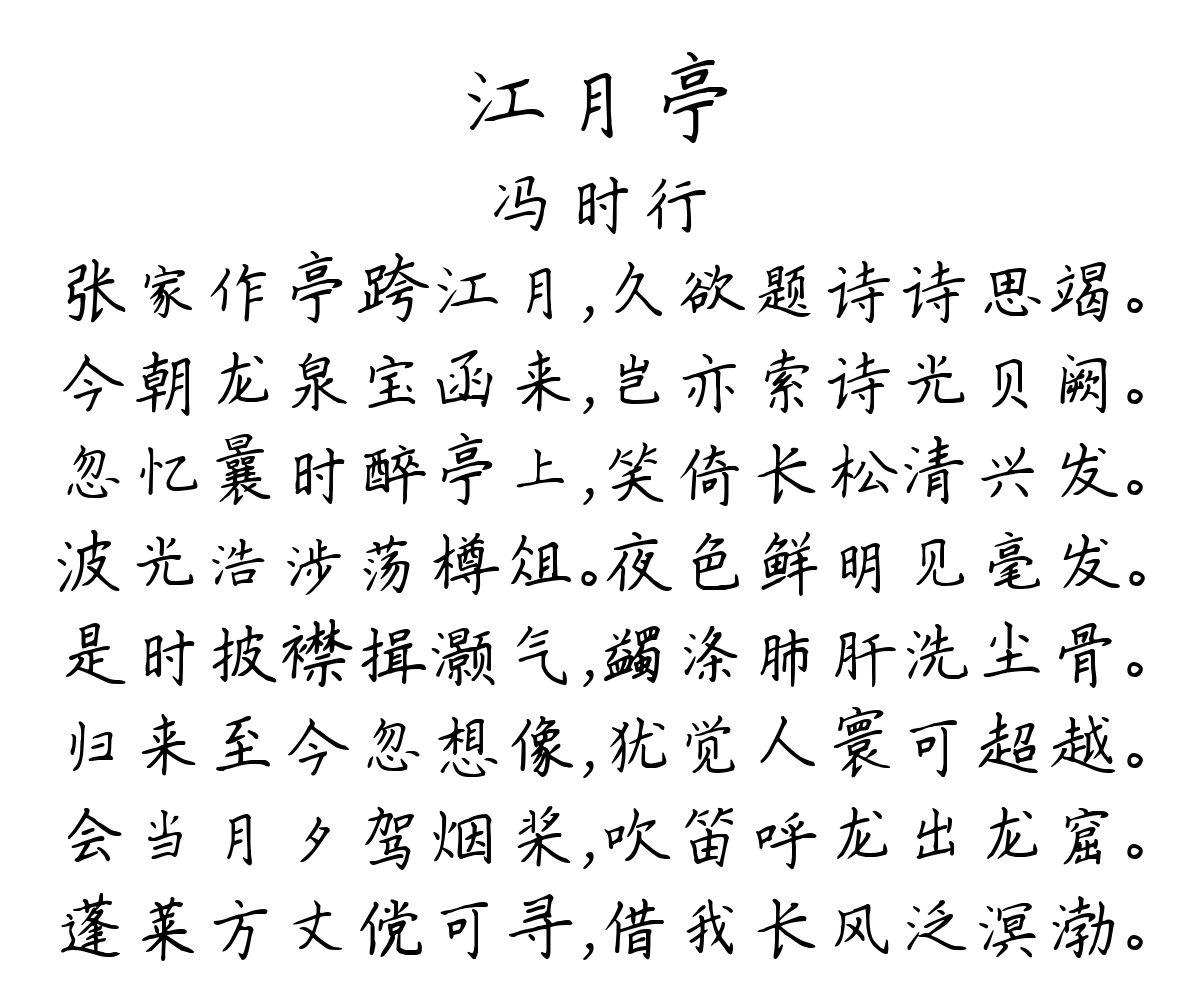 江月亭
冯时行
张家作亭跨江月,久欲题诗诗思竭。
今朝龙泉宝函来,岂亦索诗光贝阙。
忽忆曩时醉亭上,笑倚长松清兴发。
波光浩涉荡樽俎。夜色鲜明见毫发。
是时披襟揖灏气,蠲涤肺肝洗尘骨。
归来至今忽想像,犹觉人寰可超越。
会当月夕驾烟桨,吹笛呼龙出龙窟。
蓬莱方丈傥可寻,借我长风泛溟渤。